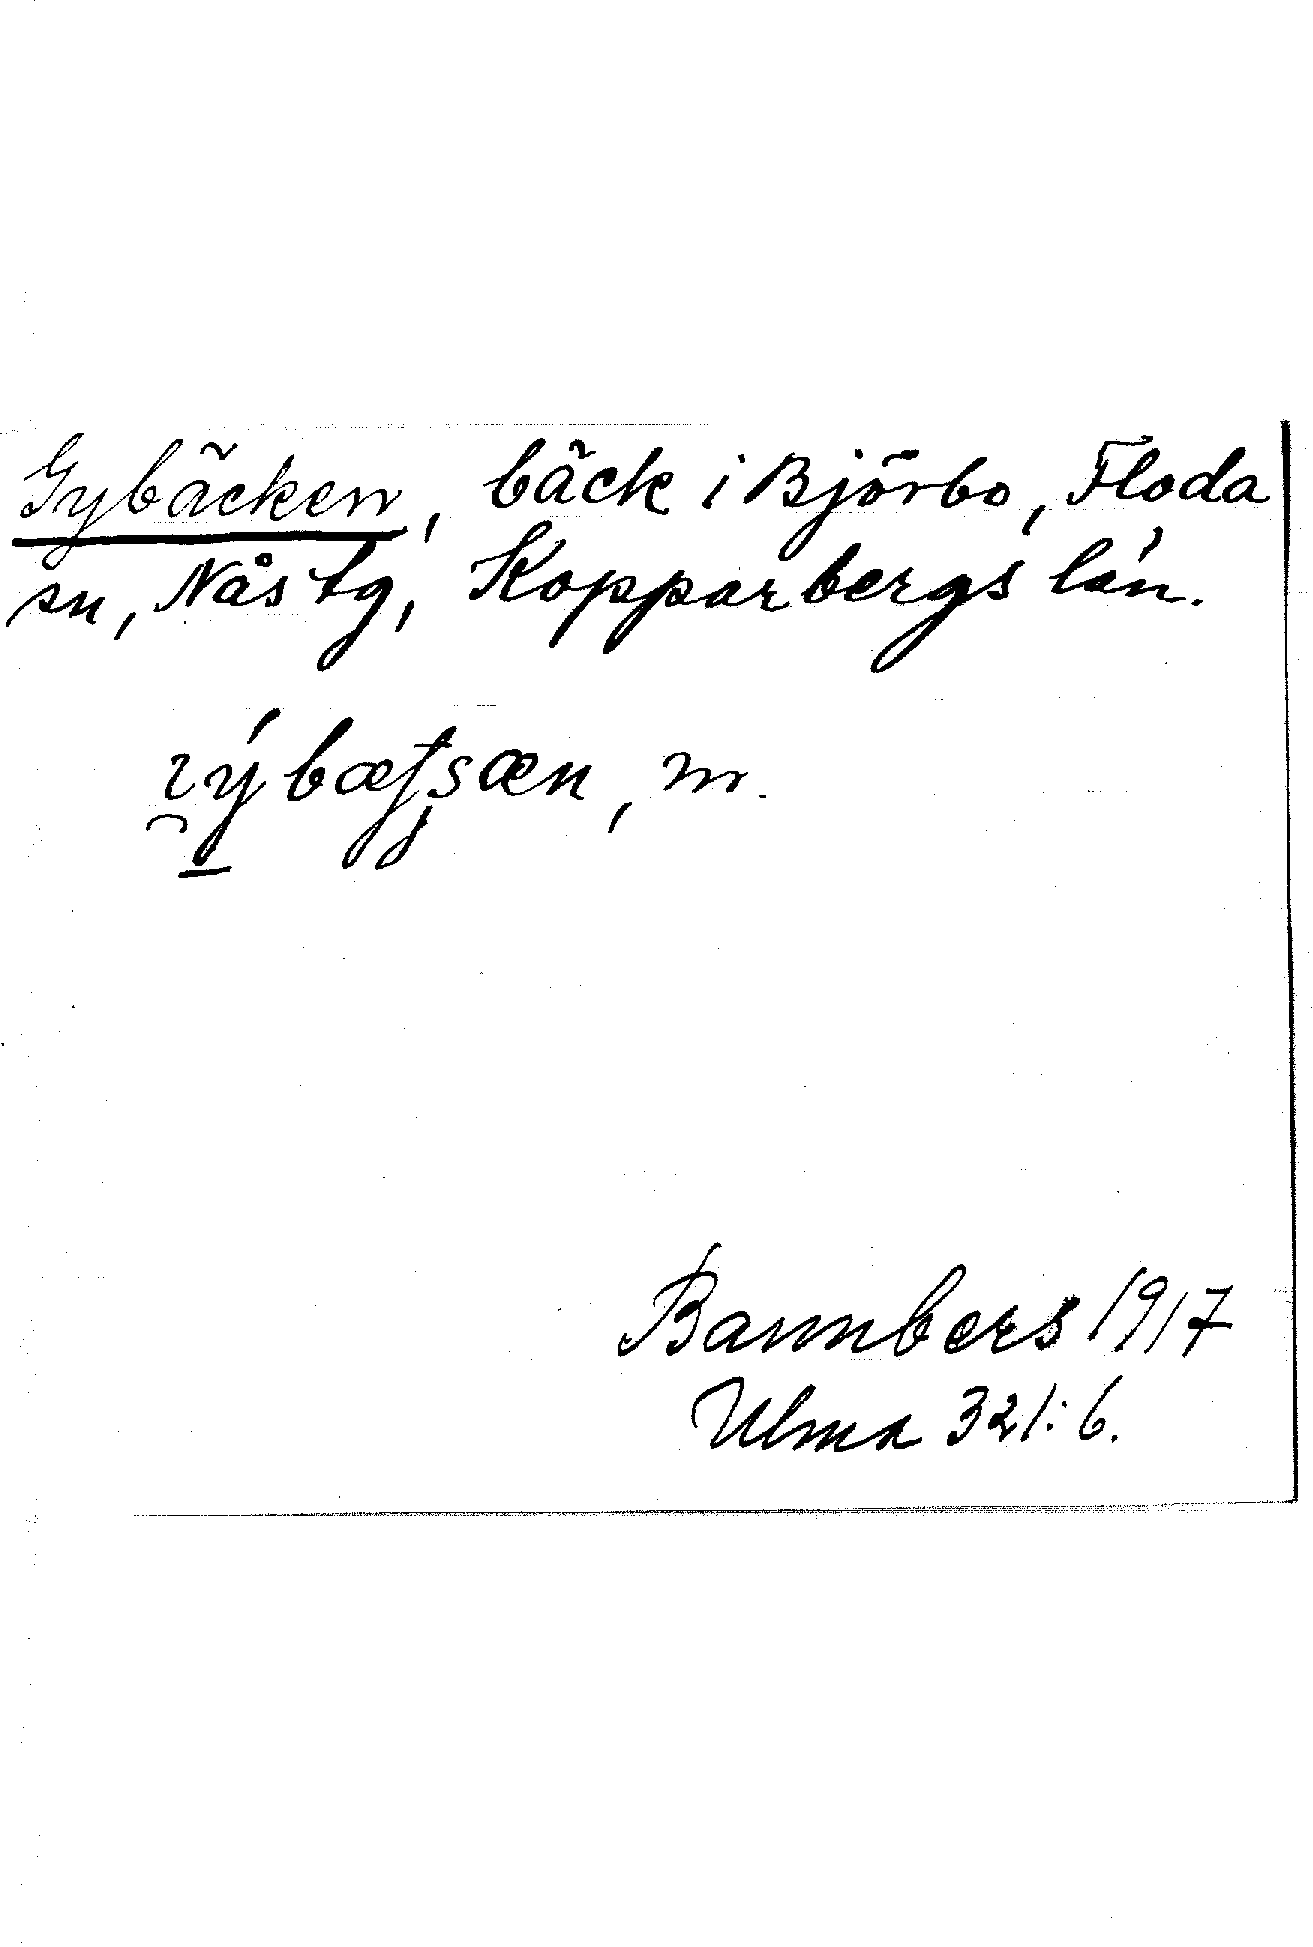 Gybäcken, bäck i Björbo, Floda
sn, Nås tg, Kopparbergs län.
m.
Bannbers 1917
Ulma 321:6.